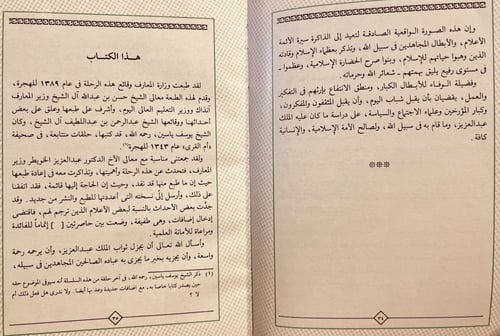 وإن هذه الصورة الواقعية الصادقة لتعيد إلى الذاكرة سيرة الأئمة
الأعلام، والأبطال المجاهدين في سبيل الله، وتذكر بعظماء الإسلام وقادته
الذين وهبوا حياتهم للإسلام، وبنوا صرح الحضارة الإسلامية، وعظموا ـ
في مستوى رفيع يليق بهمتهم ـ شعائر الله وحرماته.
وفضيلة الوفاء للأبطال الكبار، ومنطق الانتفاع بإرثهم في التفكير
والعمل، يقضيان بأن يقبل شباب اليوم، وأن يقبل المثقفون والمفكرون،
وكبار المؤرخين وعلماء الاجتماع والسياسة، على دراسة ما كان عليه الملك
عبدالعزيز، وما قام به في سبيل الله، ولصالح الأمة الإسلامية، والإنسانية
كافة.
***
٣٤
هذا الكتاب
لقد طبعت وزارة المعارف وقائع هذه الرحلة في عام ١٣٨٩ للهجرة،
وقدم لهذه الطبعة معالي الشيخ حسن بن عبدالله آل الشيخ وزير المعارف
آنذاك ووزير التعليم العالي اليوم، وأشرف على طبعها وعلق على بعض
أحداثها ووقائعها الشيخ عبدالرحمن بن عبداللطيف آل الشيخ، وكان
الشيخ يوسف ياسين، رحمه الله، قد كتبها، حلقات متتابعة، في صحيفة
«أم القرى» عام ١٣٤٣ للهجرة(١).
ولقد جمعتني مناسبة مع معالي الأخ الدكتور عبدالعزيز الخويطر وزير
المعارف، فتحدث عن هذه الرحلة وأهميتها، وتذاكرت معه في إعادة طبعها
حيث إن ما طبع منها قد نفد، وحيث إن الحاجة إليها قائمة، فقد اتفقنا
على ذلك، وأرسل إليّ نسخته التي أعدتها للطبع والنشر من جديد. وقد
جدّت بعض الأحداث بالنسبة لبعض الأعلام الذين ترجم لهم، فاقتضى
إدخال إضافات، وهي طفيفة، وضعت بين حاصرتين [ ] إتماماً للفائدة
ومراعاة للأمانة العلمية.
وأسأل الله تعالى أن يجزل ثواب الملك عبدالعزيز، وأن يرحمه رحمة
واسعة، وأن يجزيه بخير ما يجزي به عباده الصالحين المجاهدين في سبيله،
(١) ذكر الشيخ يوسف ياسين، رحمه الله، في آخر حلقة من هذه السلسلة أنه سيوفي الموضوع حقه
حين يصدر كتابا خاصا به، مع إضافات جديدة وعد بها أيضا. ولا ندري هل فعل ذلك أم
لا ؟
٣٥